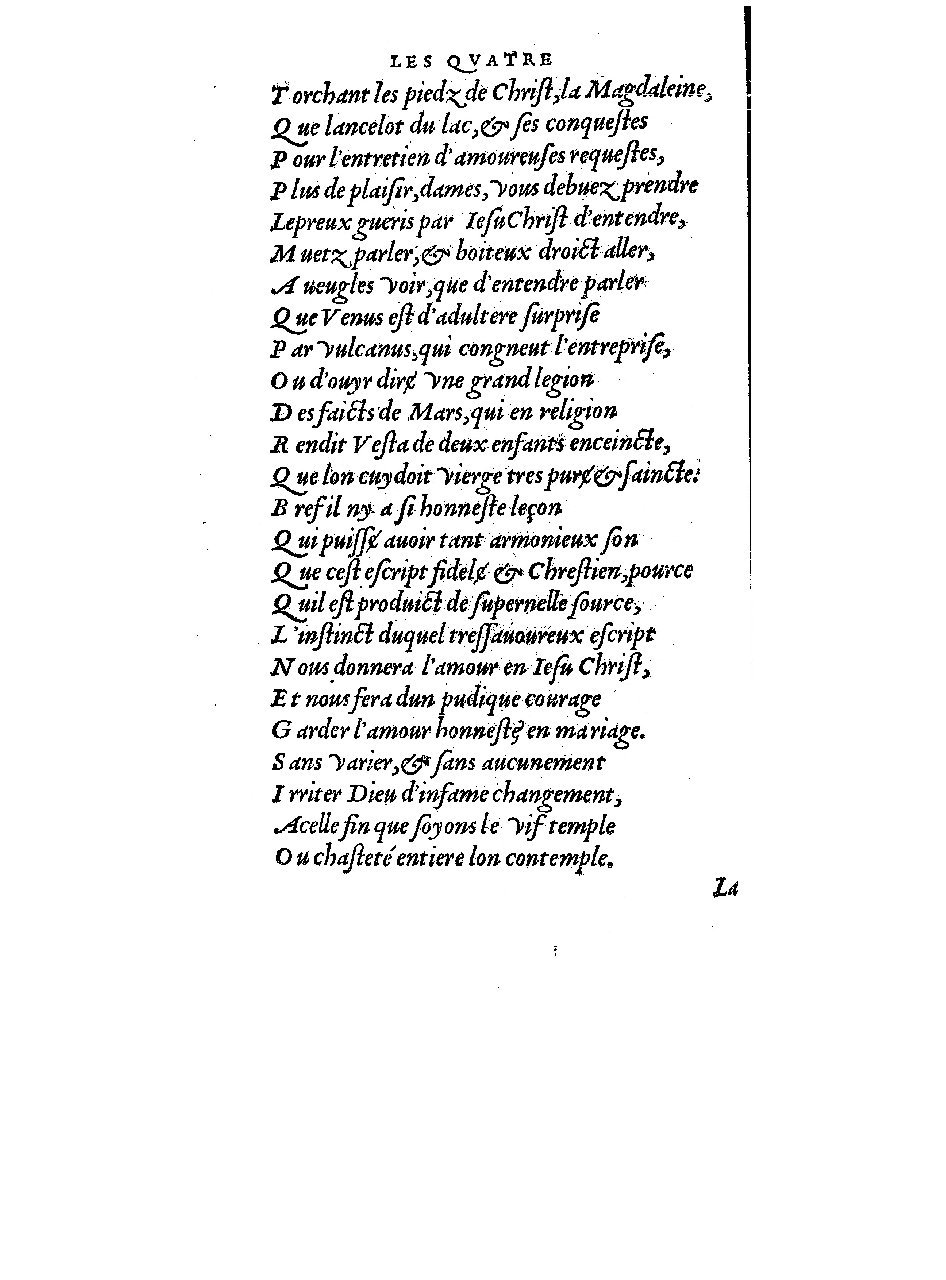 LES QVATRE
Torchant les piedz de Chriſt, la Magdaleine,
Que lancelot du lac, & ſes conqueſtes
Pour l'entretien d'amoureuſes requeſtes,
Plus de plaiſir, dames, vous debuez prendre
Lepreux gueris par Ieſu Chriſt d'entendre,
Muetz parler, & boiteux droict aller,
Aueugles voir, que d'entendre parler
Que Venus eſt d'adultere ſurpriſe
Par vulcanus, qui congneut l'entrepriſe,
Ou d'ouyr dirɇ vne grand legion
Des faicts de Mars, qui en religion
Rendit Veſta de deux enfants enceincte,
Que lon cuydoit vierge tres purɇ & ſaincte:
Bref il ny a ſi honneſte leçon
Qui puiſſɇ auoir tant armonieux ſon
Que ceſt eſcript fidelɇ & Chreſtien, pource
Quil eſt produict de ſupernelle ſource,
L'inſtinct duquel treſſauoureux eſcript
Nous donnera l'amour en Ieſu Chriſt,
Et nous fera dun pudique courage
Garder l'amour honneſtɇ en mariage.
Sans varier, & ſans aucunement
Irriter Dieu d'infame changement,
Acelle fin que ſoyons le vif temple
Ou chaſteté entiere lon contemple.
La